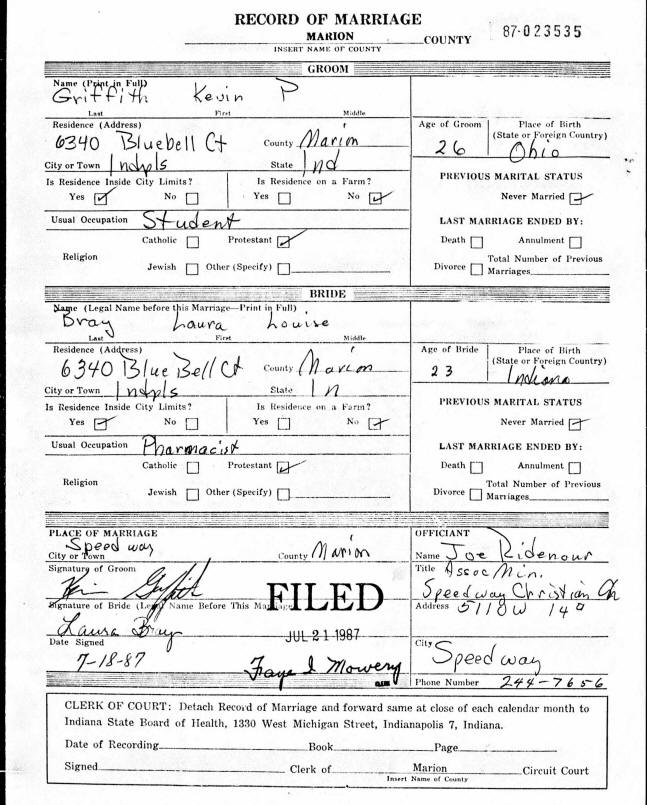 RECORD OF MARRIAGE
MARION COUNTY 87-023535
INSERT NAME OF COUNTY
GROOM
Name (Print in Full)
Griffith Kevin P
Last First Middle
Residence (Address) Age of Groom Place of Birth
6340 Bluebell Ct County Marion (State or Foreign Country)
City or Town Indpls State Ind 26 Ohio
Is Residence Inside City Limits? Is Residence on a Farm? PREVIOUS MARITAL STATUS
Yes No Yes No Never Married
Usual Occupation Student LAST MARRIAGE ENDED BY:
Catholic Protestant Death Annulment
Religion Total Number of Previous
Jewish Other (Specify) Divorce Marriages
BRIDE
Name (Legal Name before this Marriage—Print in Full)
Bray Laura Louise
Last First Middle
Residence (Address) Age of Bride Place of Birth
6340 Blue Bell Ct County Marion (State or Foreign Country)
City or Town Indpls State In 23 Indiana
Is Residence Inside City Limits? Is Residence on a Farm? PREVIOUS MARITAL STATUS
Yes No Yes No Never Married
Usual Occupation Pharmacist LAST MARRIAGE ENDED BY:
Catholic Protestant Death Annulment
Religion Total Number of Previous
Jewish Other (Specify) Divorce Marriages
PLACE OF MARRIAGE OFFICIANT
Speedway
City or Town County Marion Name Joe Ridenour
Signature of Groom Title Assoc Min.
Kevin Griffith FILED Speedway Christian Ch
Signature of Bride (Legal Name Before This Marriage) Address 5110 W 14th
Laura Bray JUL 21 1987
Date Signed City Speedway
7-18-87 Faye I Mowery
Phone Number 244-7656
CLERK OF COURT: Detach Record of Marriage and forward same at close of each calendar month to
Indiana State Board of Health, 1330 West Michigan Street, Indianapolis 7, Indiana.
Date of Recording Book Page
Signed Clerk of Marion Circuit Court
Insert Name of County